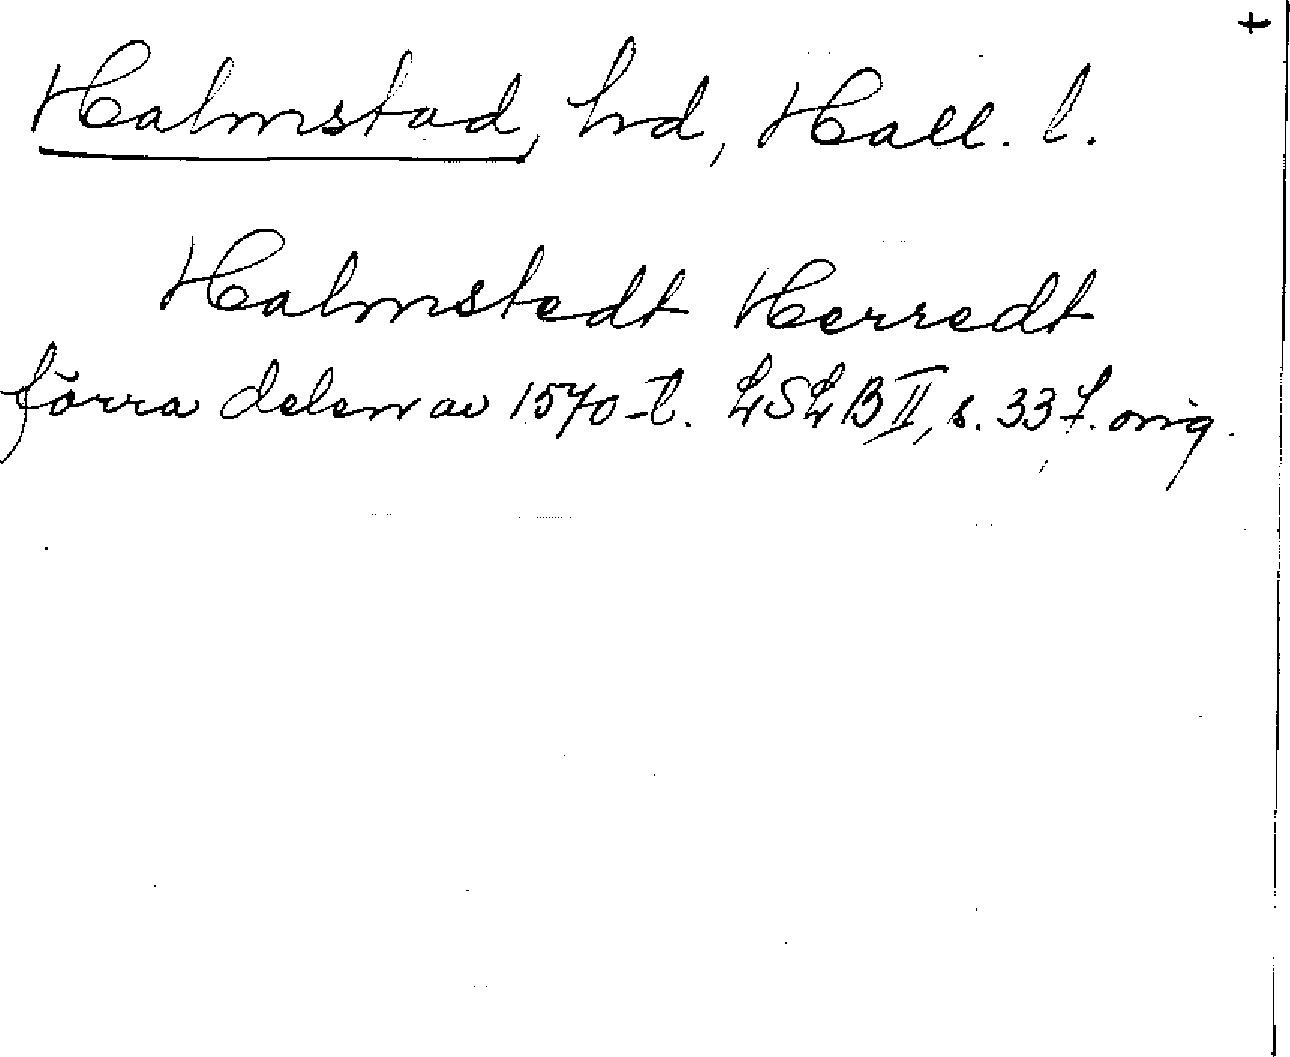 +
Halmstad, hd, Hall. l.
Halmstedt Herredt
förra delen av 1570-t. LSLB II, s. 337. orig.